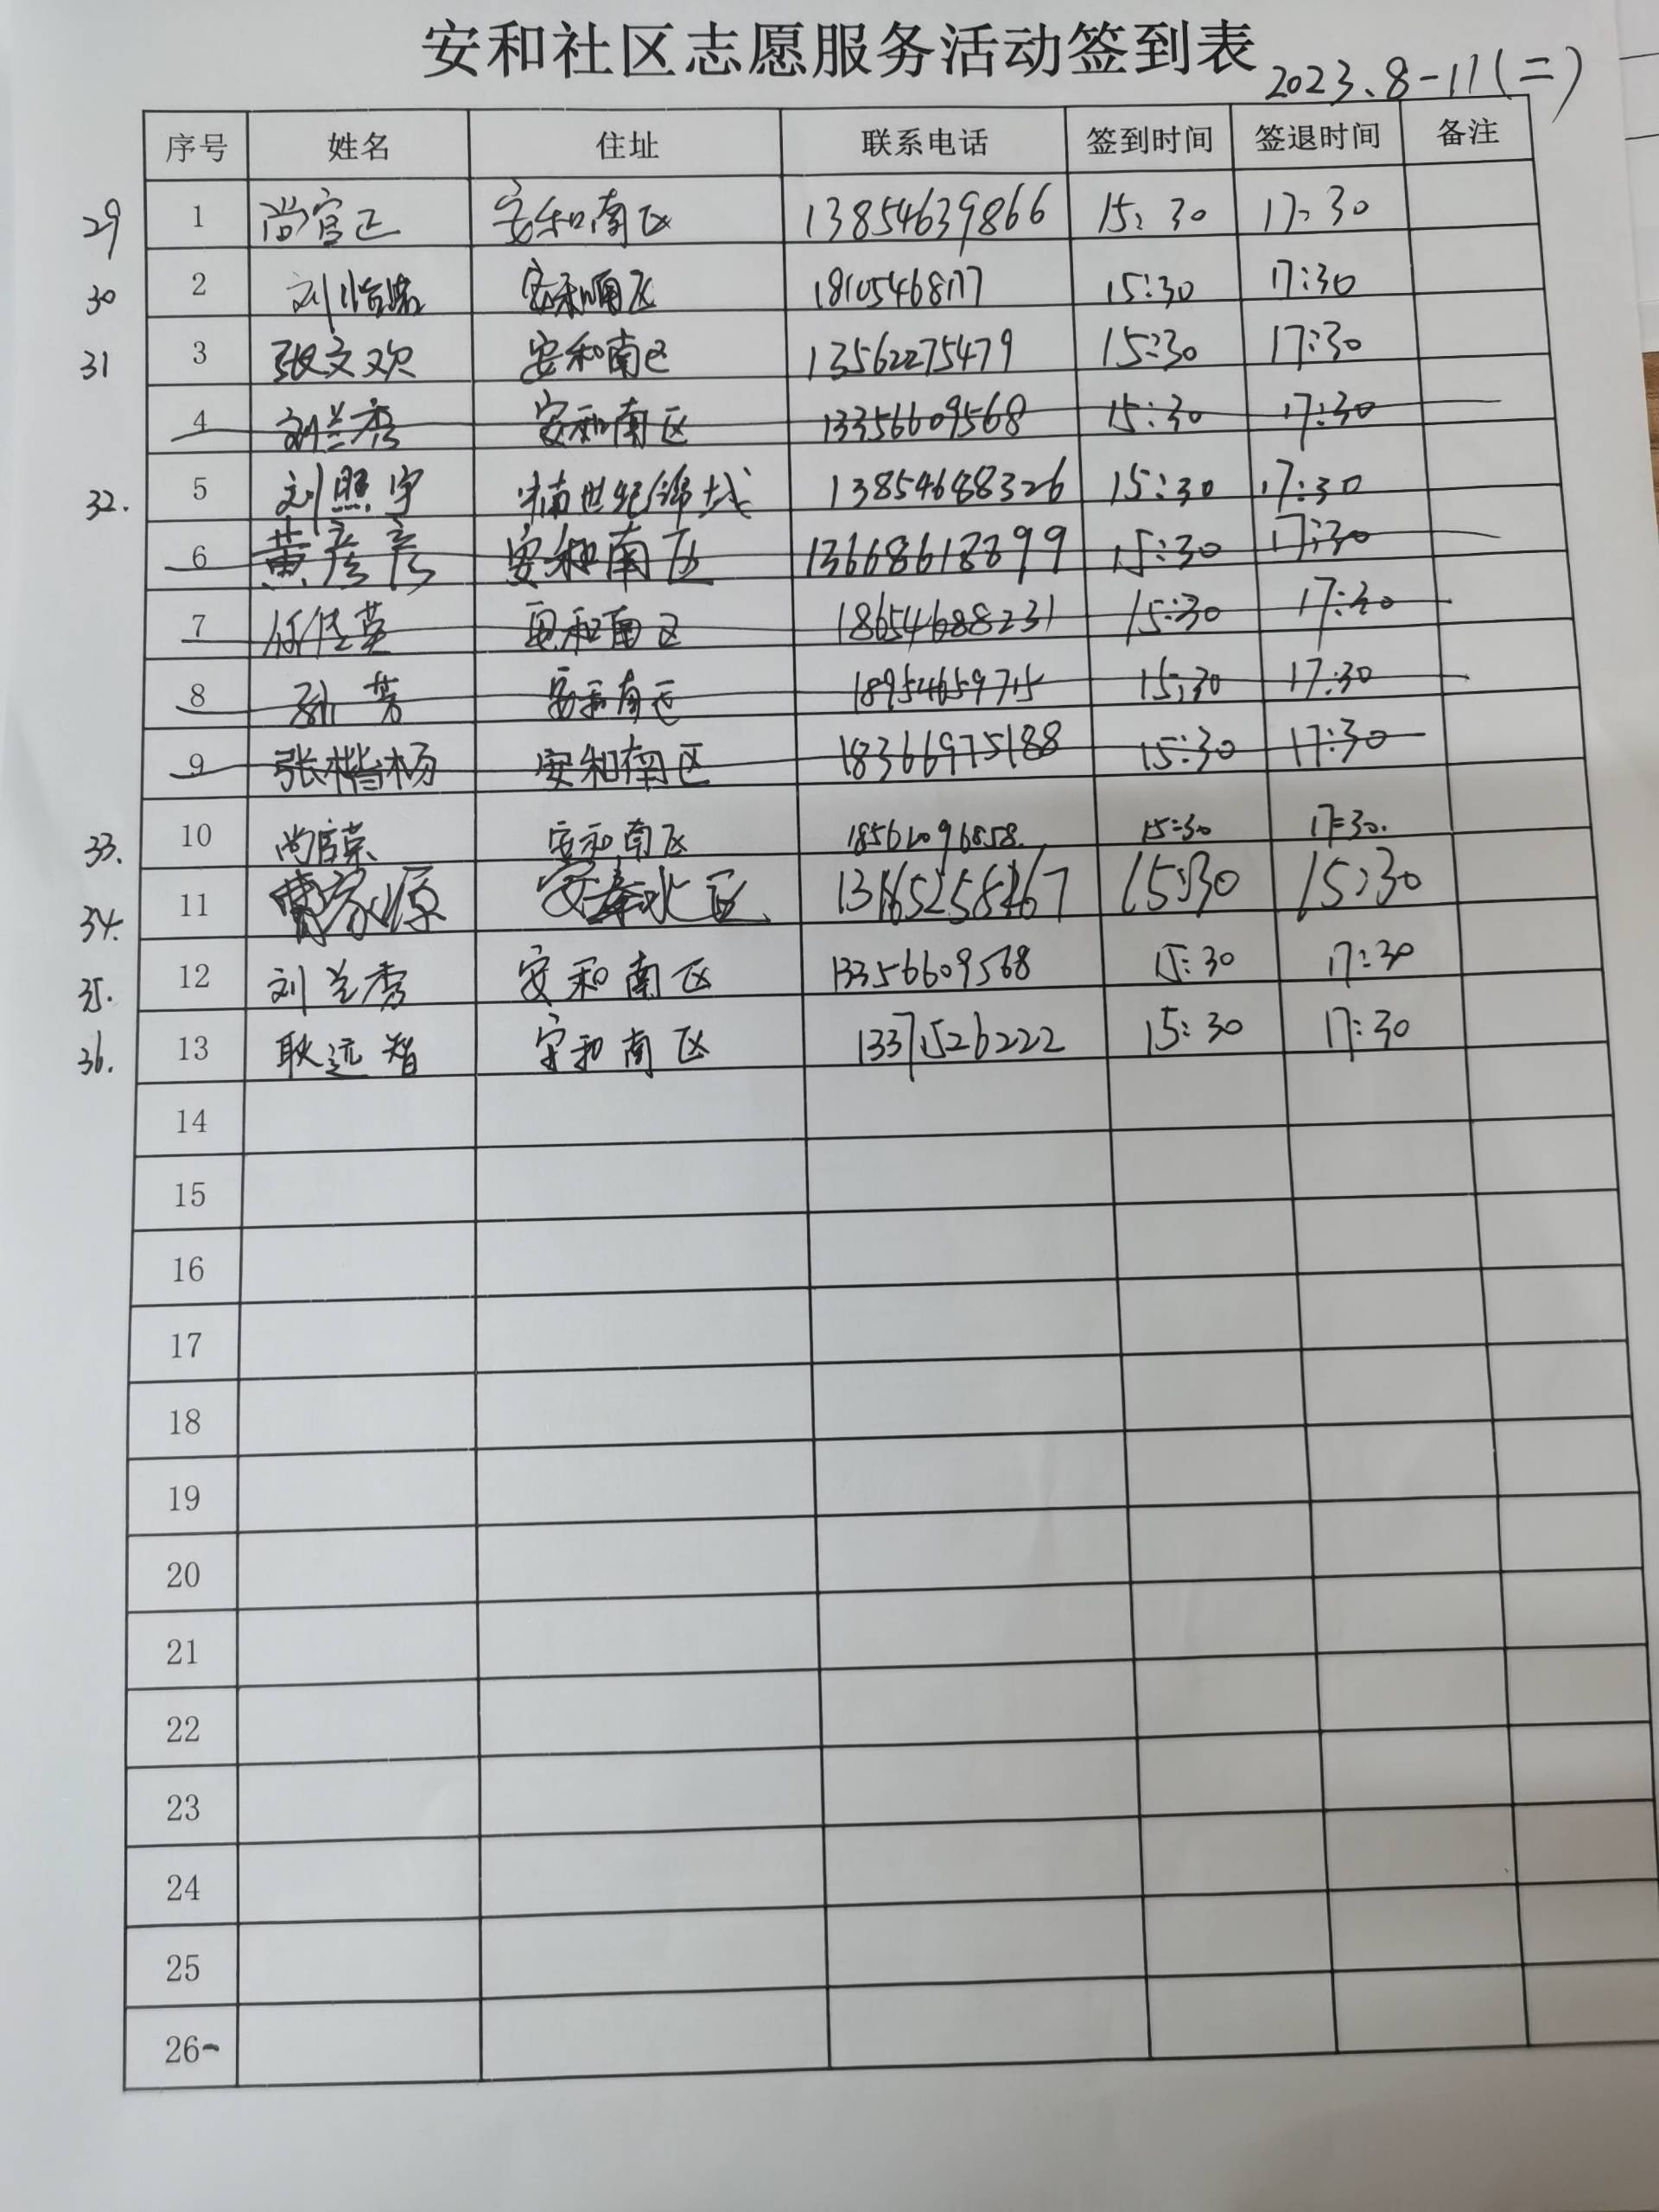 安和社区志愿服务活动签到表
2023、8-11(二)
序号 姓名 住址 联系电话 签到时间 签退时间 备注
29 1 尚官正 安和南区 13854639866 15:30 17:30
30 2 安和南区 15:30 17:30
31 3 张文欢 安和南区 13562275479 15:30 17:30
4 刘兰秀 安和南区 13356609568 15:30 17:30
32. 5 刘照宇 世纪锦城 13854688326 15:30 17:30
6 黄彦彦 安和南区 13668618899 15:30 17:30
7 任佳英 安和南区 18654688231 15:30 17:30
8 孙芳 安和南区 18954659715 15:30 17:30
9 张楷杨 安和南区 18366975188 15:30 17:30
33. 10 安和南区 18561096858. 15:30 17:30.
34. 11 曹家源 安泰北区 15:30 15:30
35. 12 刘兰秀 安和南区 13356609568 15:30 17:30
36. 13 耿远智 安和南区 13371526222 15:30 17:30
14
15
16
17
18
19
20
21
22
23
24
25
26